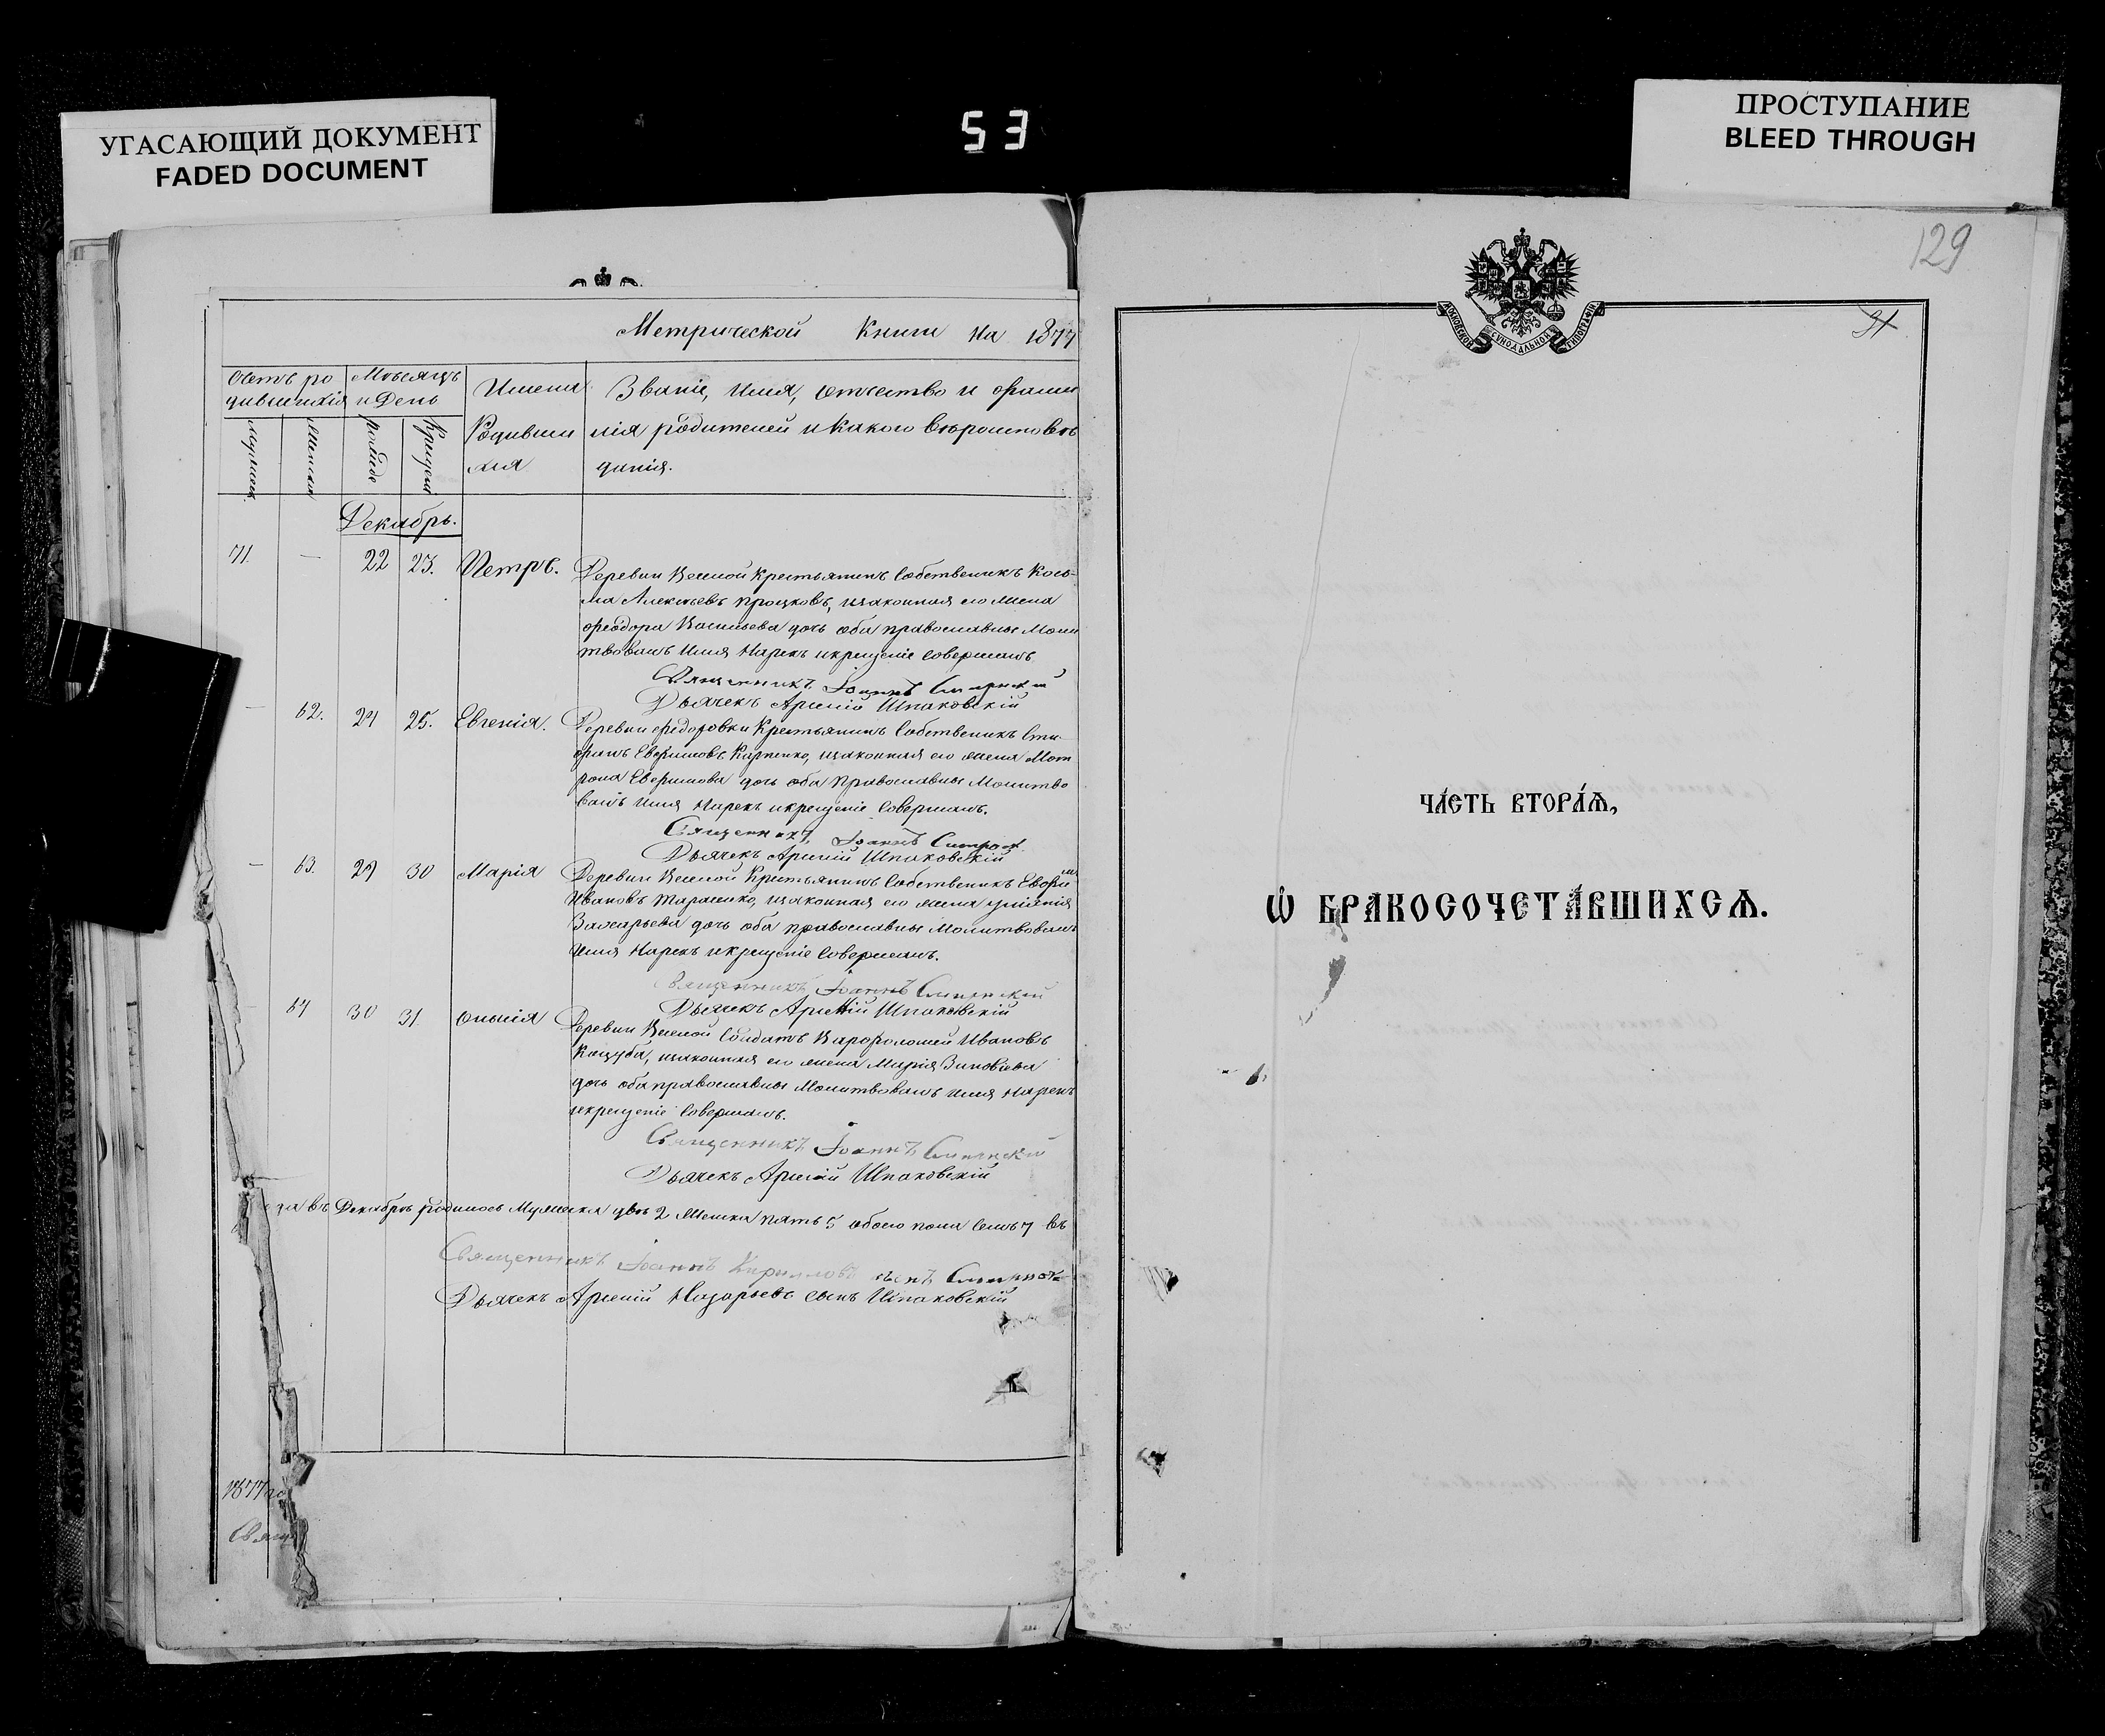 УГАСАЮЩИЙ ДОКУМЕНТ
FADED DOCUMENT
53
ПРОСТУПАНИЕ
BLEED THROUGH
Метрической Книги на 1877
Счетъ ро
дившихся
Мѣсяцъ
и День
Имена
Родивши
хся
Званіе, Имя, отчество и фами
лія родителей и Какого вѣроисповѣ
данія.
Декабрь.
71. — 22 23. Петръ.
Деревни Крестьянинъ Собственникъ Кось-
ма Алексѣевъ Процковъ, изаконная его жена
Феодора Васильева дочь оба православные Моли
твовалъ Имя Нарекъ икрещеніе Совершалъ
Священникъ Іоаннъ
Дьячекъ Арсеній Шпаковскій
— 62. 24 25. Евгенія.
Деревни Федоровки Крестьянинъ Собственникъ Сте-
фанъ Евфимовъ Карпенко, изаконная его жена Мот
рона Евфимова дочь оба Православные Молитво
валъ Имя Нарекъ икрещеніе Совершалъ.
Священникъ Іоаннъ
Дьячекъ Арсеній Шпаковскій
— 63. 29 30 Марія
Деревни Крестьянинъ Собственникъ Евфим
Ивановъ Тарасенко, изаконная его жена
Захарьева дочь оба православные Молитвовалъ
Имя Нарекъ икрещеніе Совершалъ.
Священникъ Іоаннъ
Дьячекъ Арсеній Шпаковскій
64 30 31.
Деревни Солдатъ Варфоломей Ивановъ
Кацуба, изаконная его жена Марія Зиновіева
дочь оба православные Молитвовалъ Имя Нарекъ
икрещеніе Совершалъ.
Священникъ Іоаннъ
Дьячекъ Арсеній Шпаковскій
да въ Декабрѣ родилось Мужеска два 2 Женска пять 5 обоего пола Семь 7 въ
Священникъ Іоаннъ Кирилловъ сынъ
Дьячекъ Арсеній Назарьевъ сынъ Шпаковскій
1877 го
Свящ
129
МОСКОВСКОЙ СѴНОДАЛЬНОЙ ТИПОГРАФІИ
ЧА́СТЬ ВТОРА́Ѧ,
Ѽ БРАКОСОЧЕТА́ВШИХСѦ.